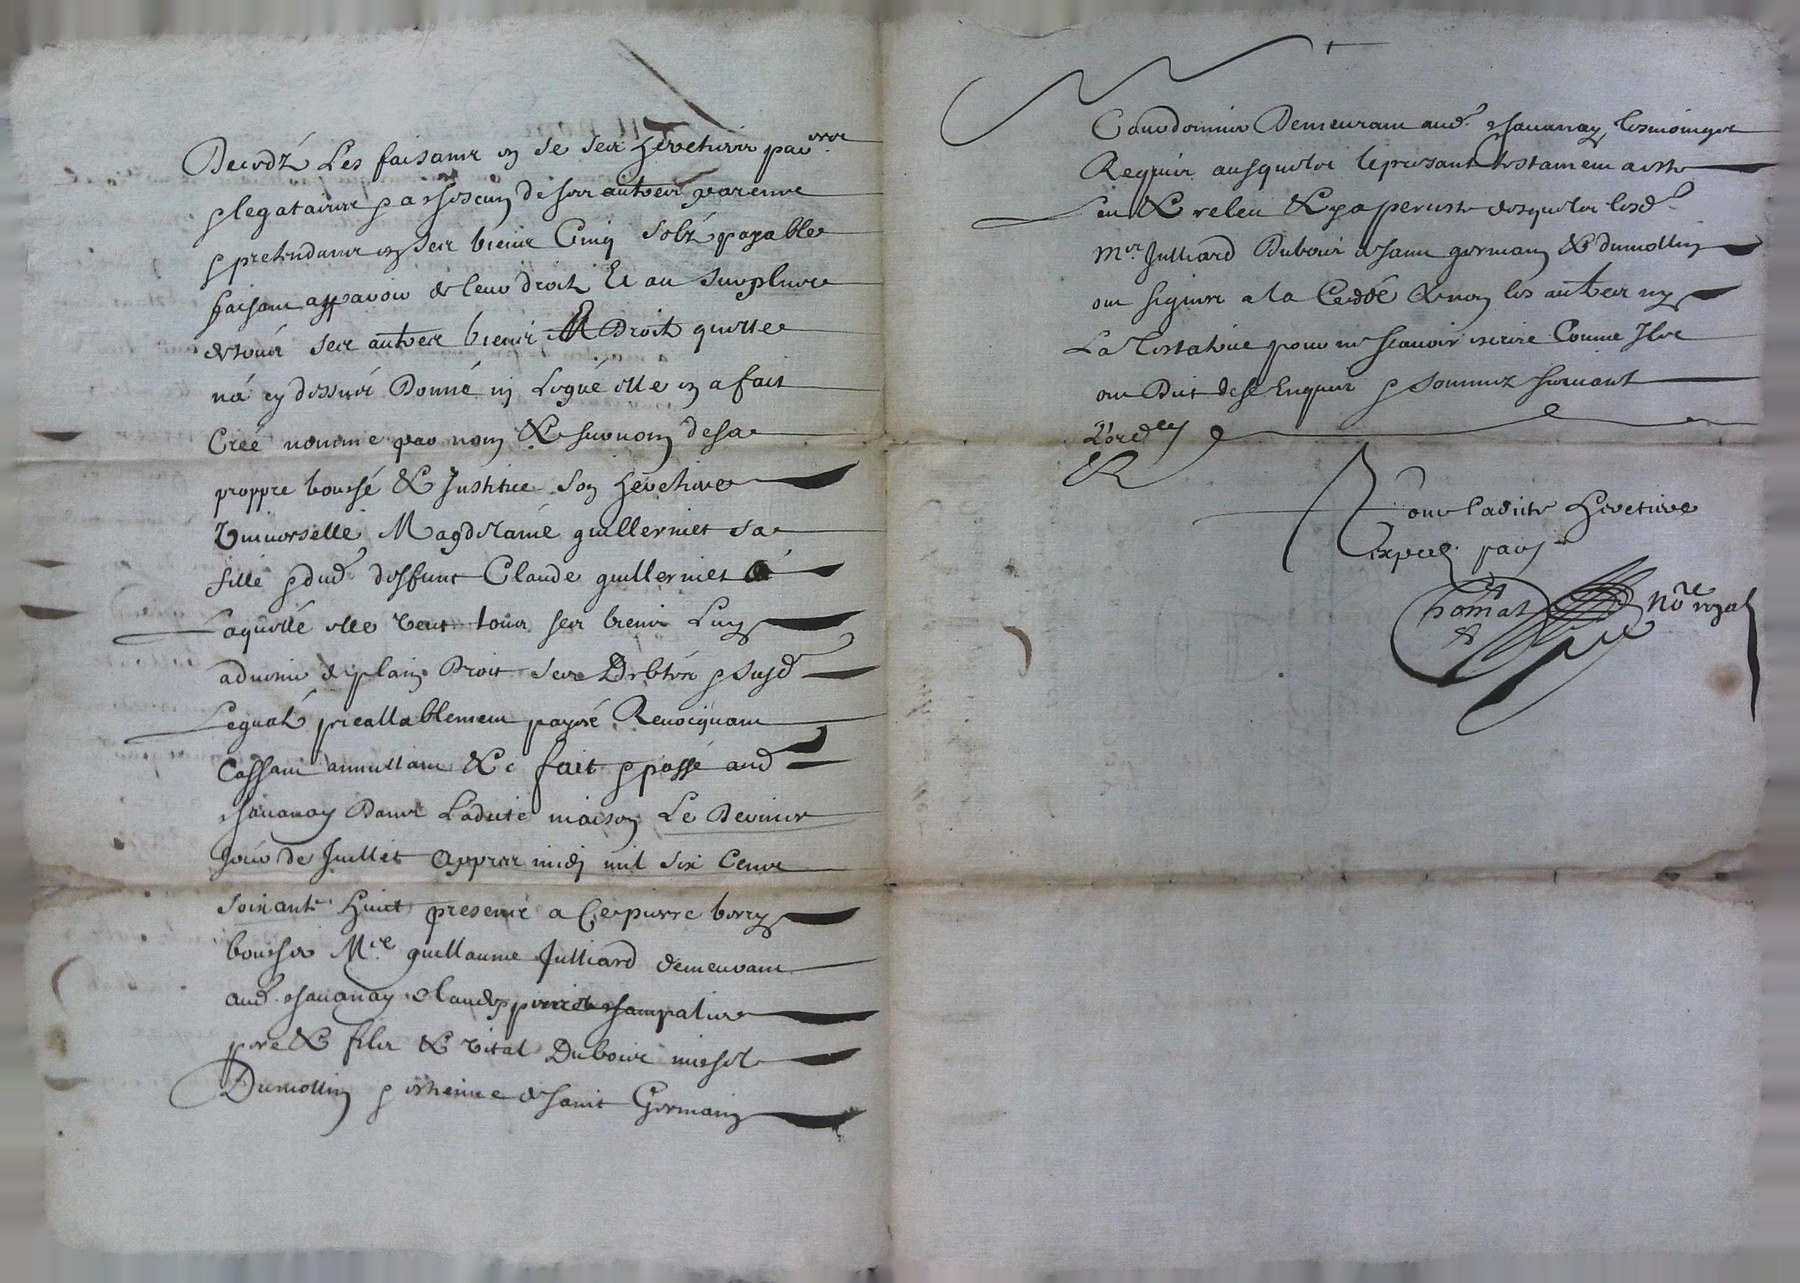 Decedz Les faisant en se ses heretiers par
& legataires & a chescung de ses autres parents
& pretendants en ses biens Cinq solz payables
faisant apparoir de leur droit Et au surplus
de tous ses autres biens & Droit quelle
na cy dessus Donné ny Legué elle en a fait
Creé nommé par nom & surnom de sa
proppre bouché & Justitue son heretiere
Vniverselle Magdelaine guillermet sa
fille & dud. deffunt Claude guillermet a
Laquelle elle veut tous ses biens Luy
advenir de plain Droit ses Debtes & susd.
Legatz preallablement payés Revocquant
Cassant annullant &c fait & passé aud.
Chavanay Dans Ladite maison Le Dernier
Jour de Juillet appres midy mil six Cents
soixante huict presents a Ce pierre borry
boucher Mre guillaume Julliard demeurant
aud. Chavanay Claude
pere & fils & vital Dubois michel
Dumollin & estienne de saint Germain
Courdonnier Demeurant aud. Chavanay tesmoings
Requis ausquelz le presant testament a esté
leu & releu & y a persisté desquelz lesd.
Mre Julliard Dubois de saint germain & dumollin
ont signés a la Cedde & non les autres ny
La testatrice pour ne scavoir escrire Comme Ilz
ont Dict de ce Enquis & sommez suivant
L'ord.
Pour ladite heretiere
exped.
Thomas No.re royal